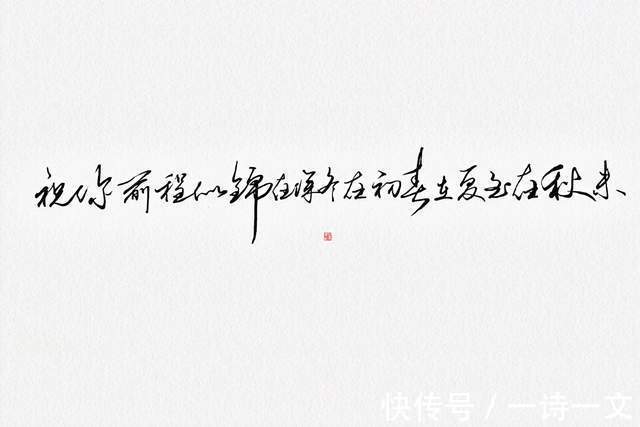 祝你前程似锦在深冬在初春在夏至在秋末
快传号 / 一诗一文